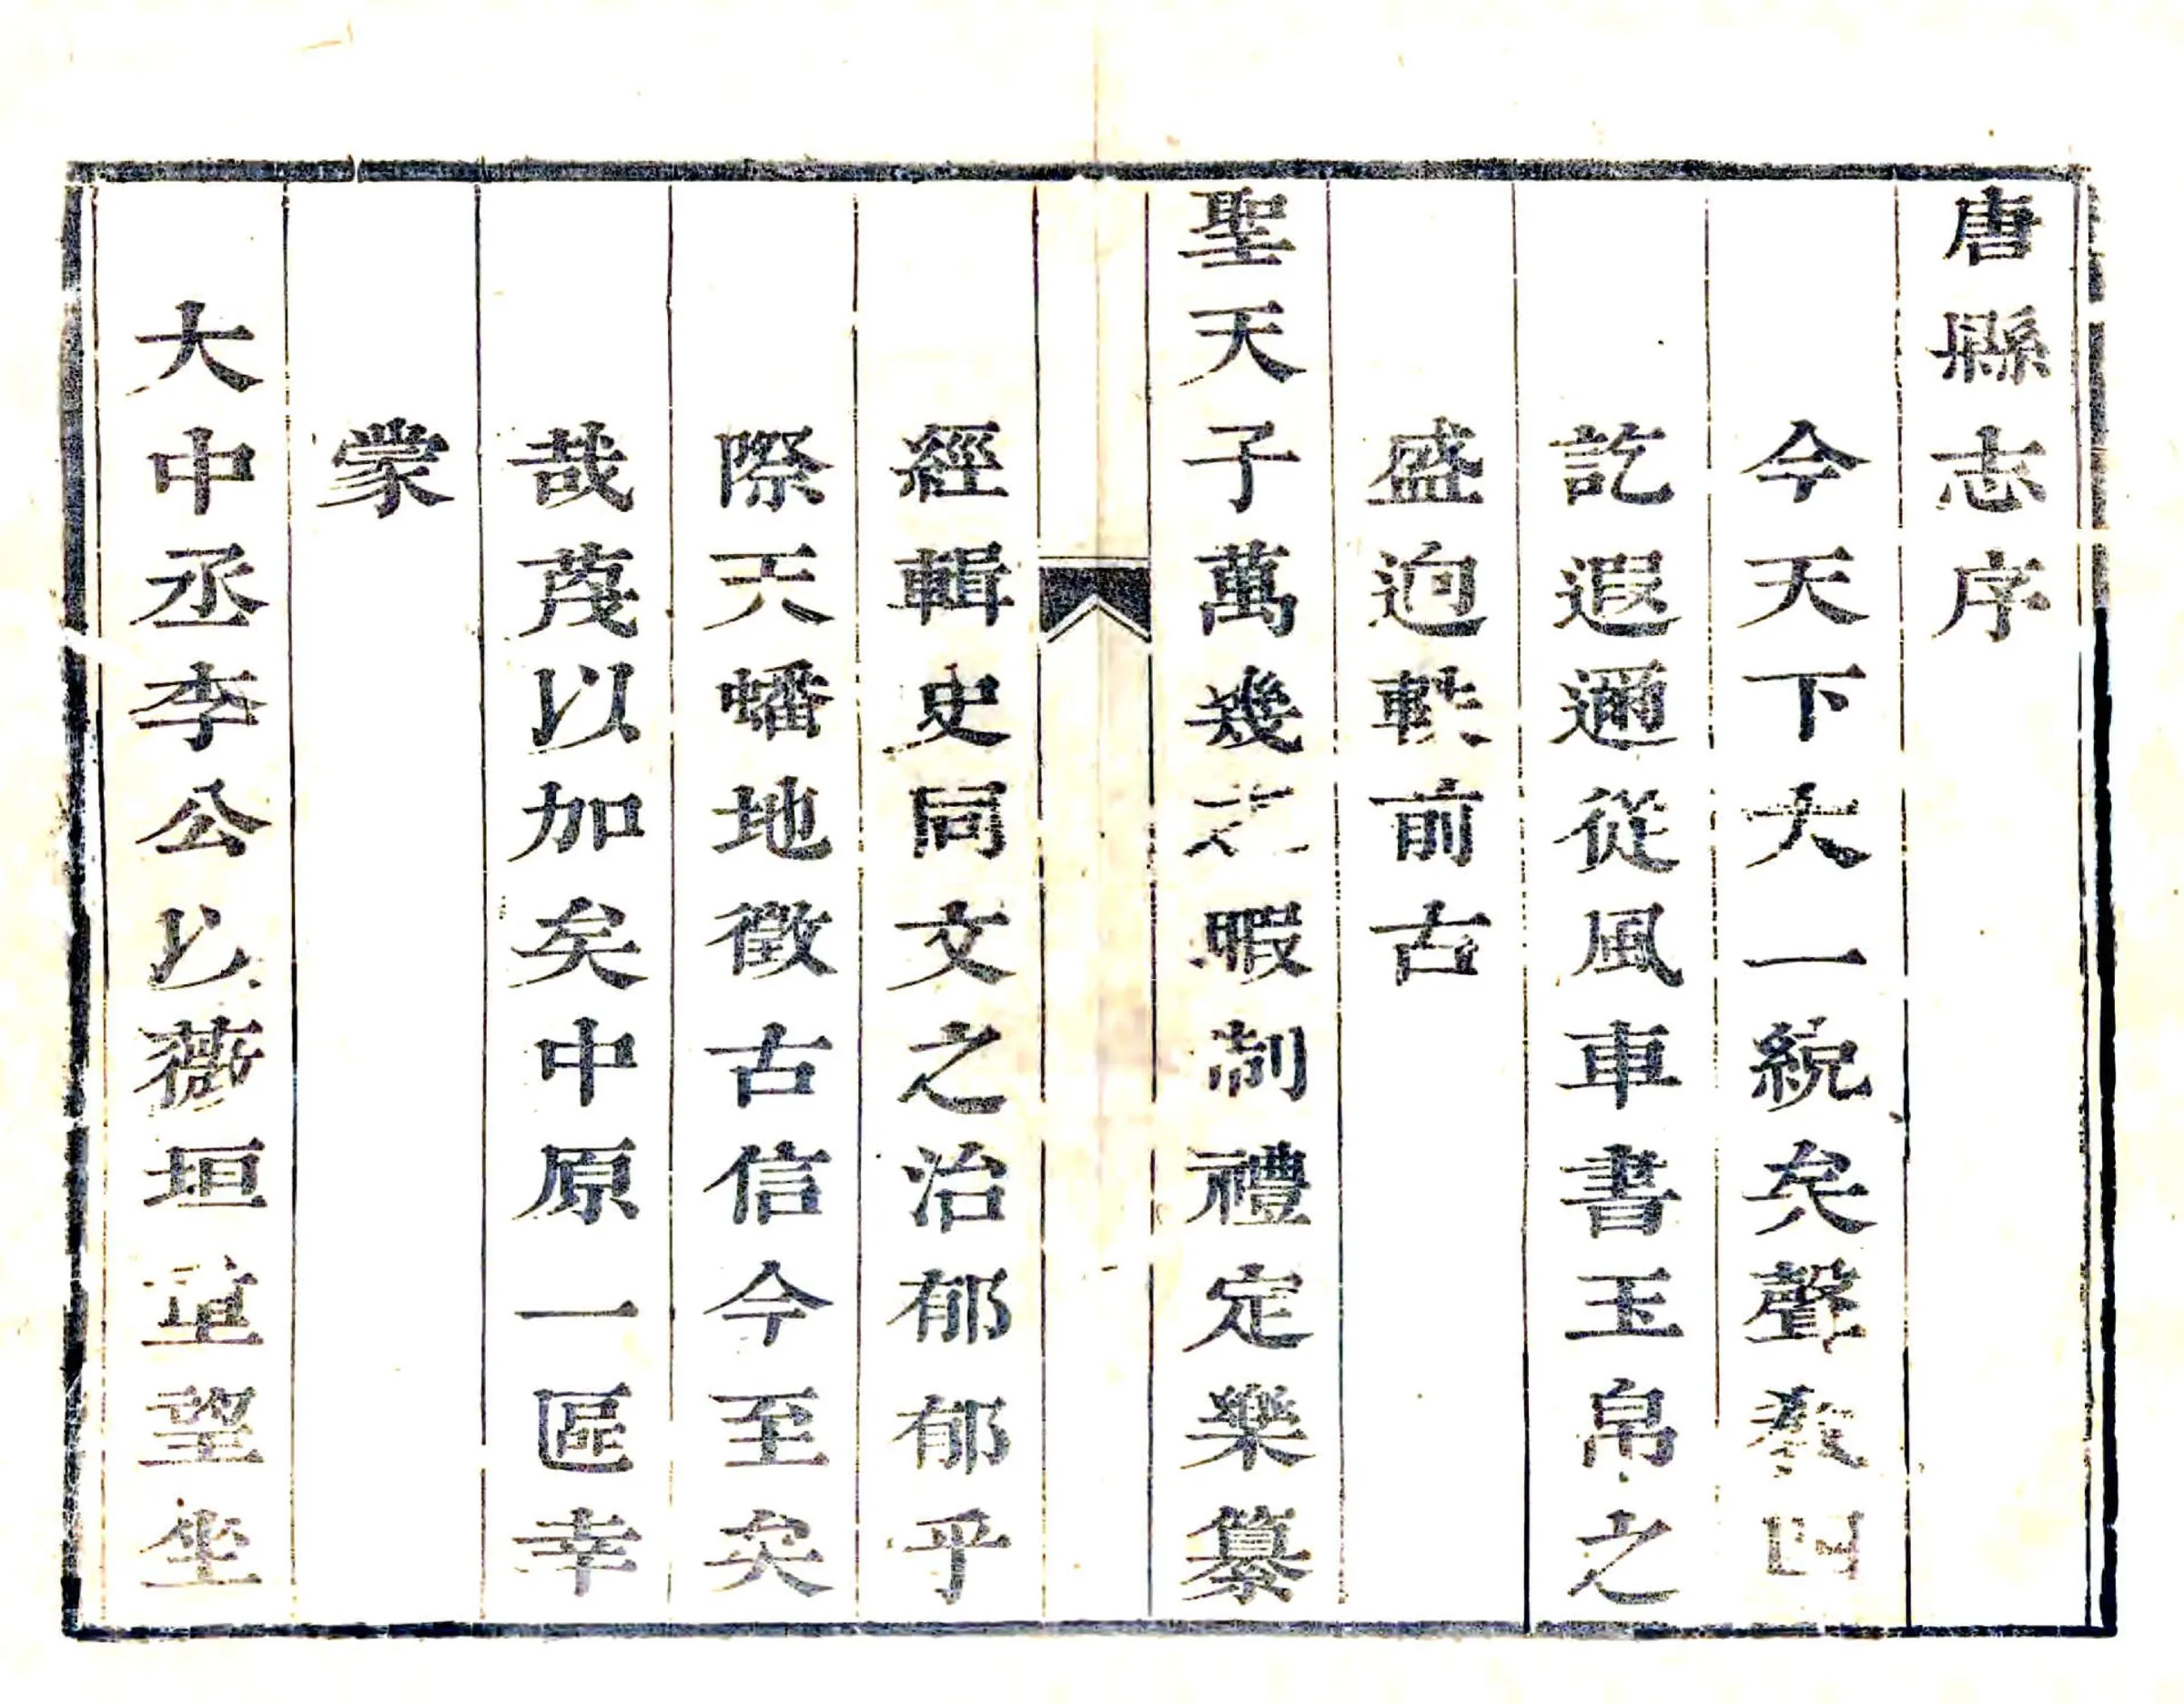 唐縣志序
今天下大一統矣聲教四
訖遐邇從風車書玉帛之
盛迥軼前古
聖天子萬幾之暇制禮定樂纂
經輯史同文之治郁郁乎
際天蟠地徵古信今至矣
哉蔑以加矣中原一區幸
蒙
大中丞李公以薇垣重望坐